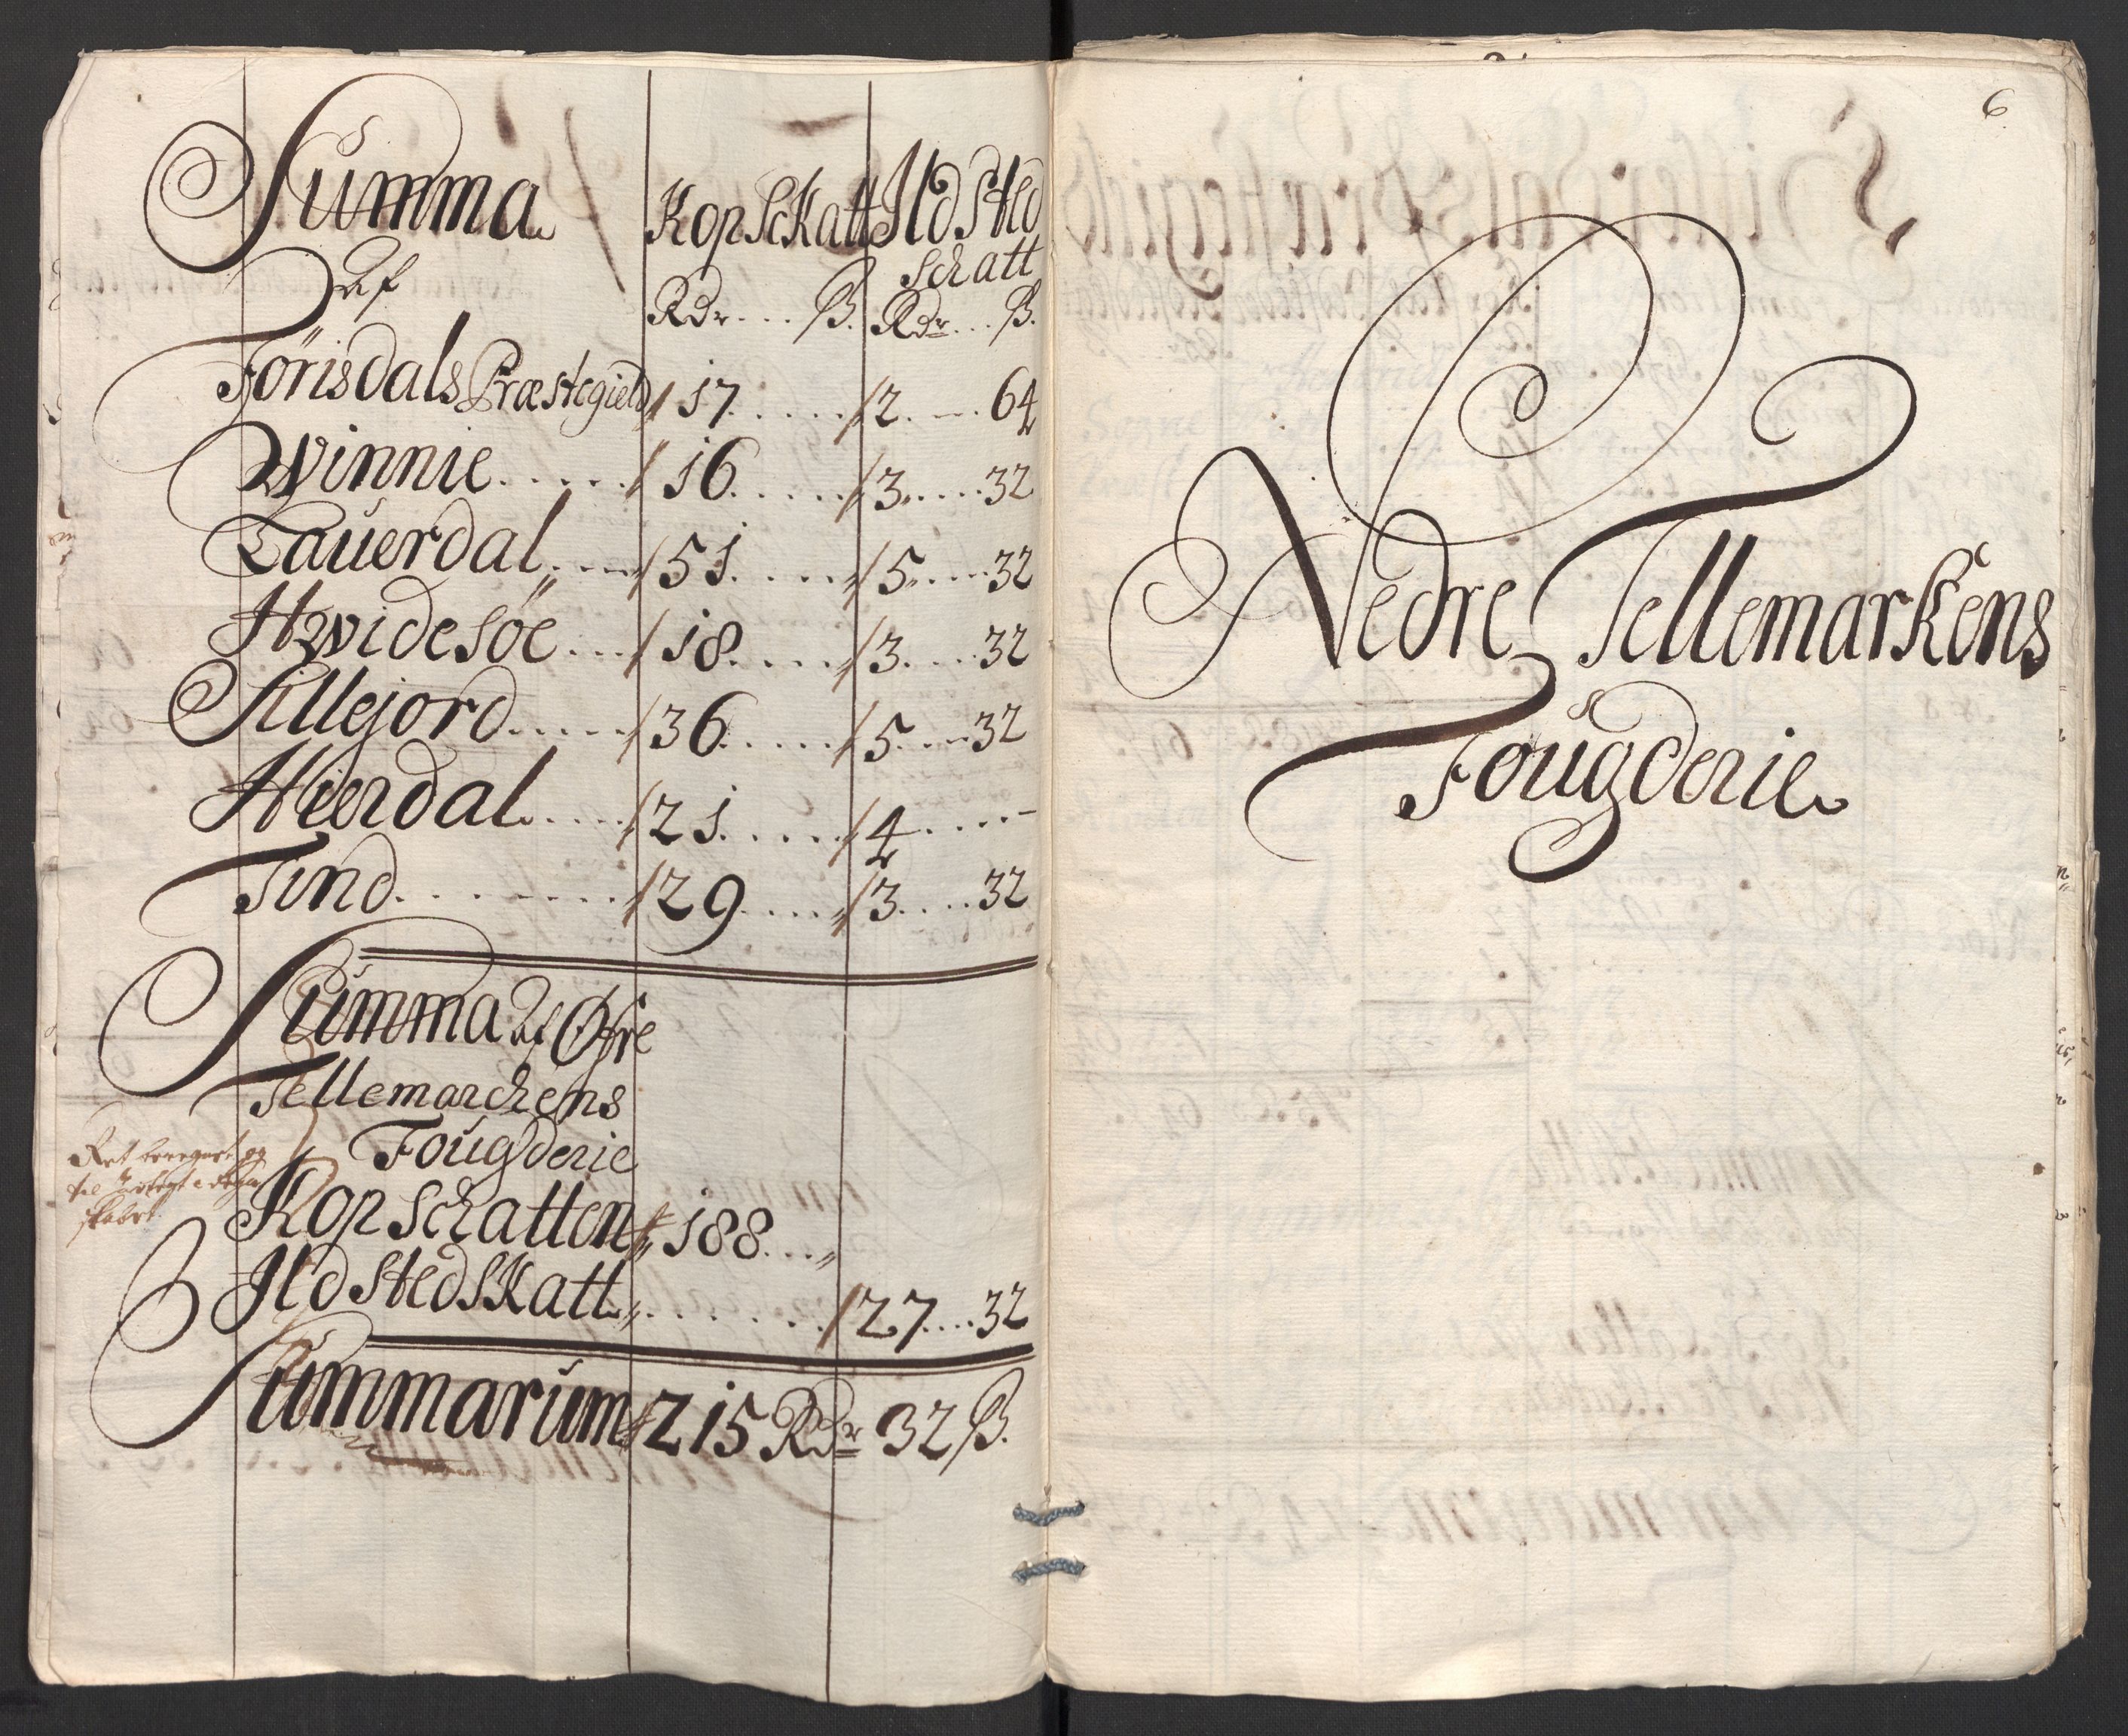 Summa Kop Skatt Ild Sted
Schatt
af Rdr... ß. Rdr... ß.
Förisdals Præstegield 17..... 2.... 64
Winnie..... 16..... 3.... 32
Lauerdal.... 51..... 5.... 32
Hwidesöe... 18..... 3.... 32
Sillejord..... 36..... 5.... 32
Hierdal..... 21..... 4....-
Tind......... 29..... 3.... 32
Summa af Øfre
Tellemarchens
Fougderie
Kop schatten 188....
Ild Sted Skatt........ 27.... 32
Summarum 215 Rdr 32 ß.
Ret beregnet og
til
6
Nedre Tellemarkens
Fougderie